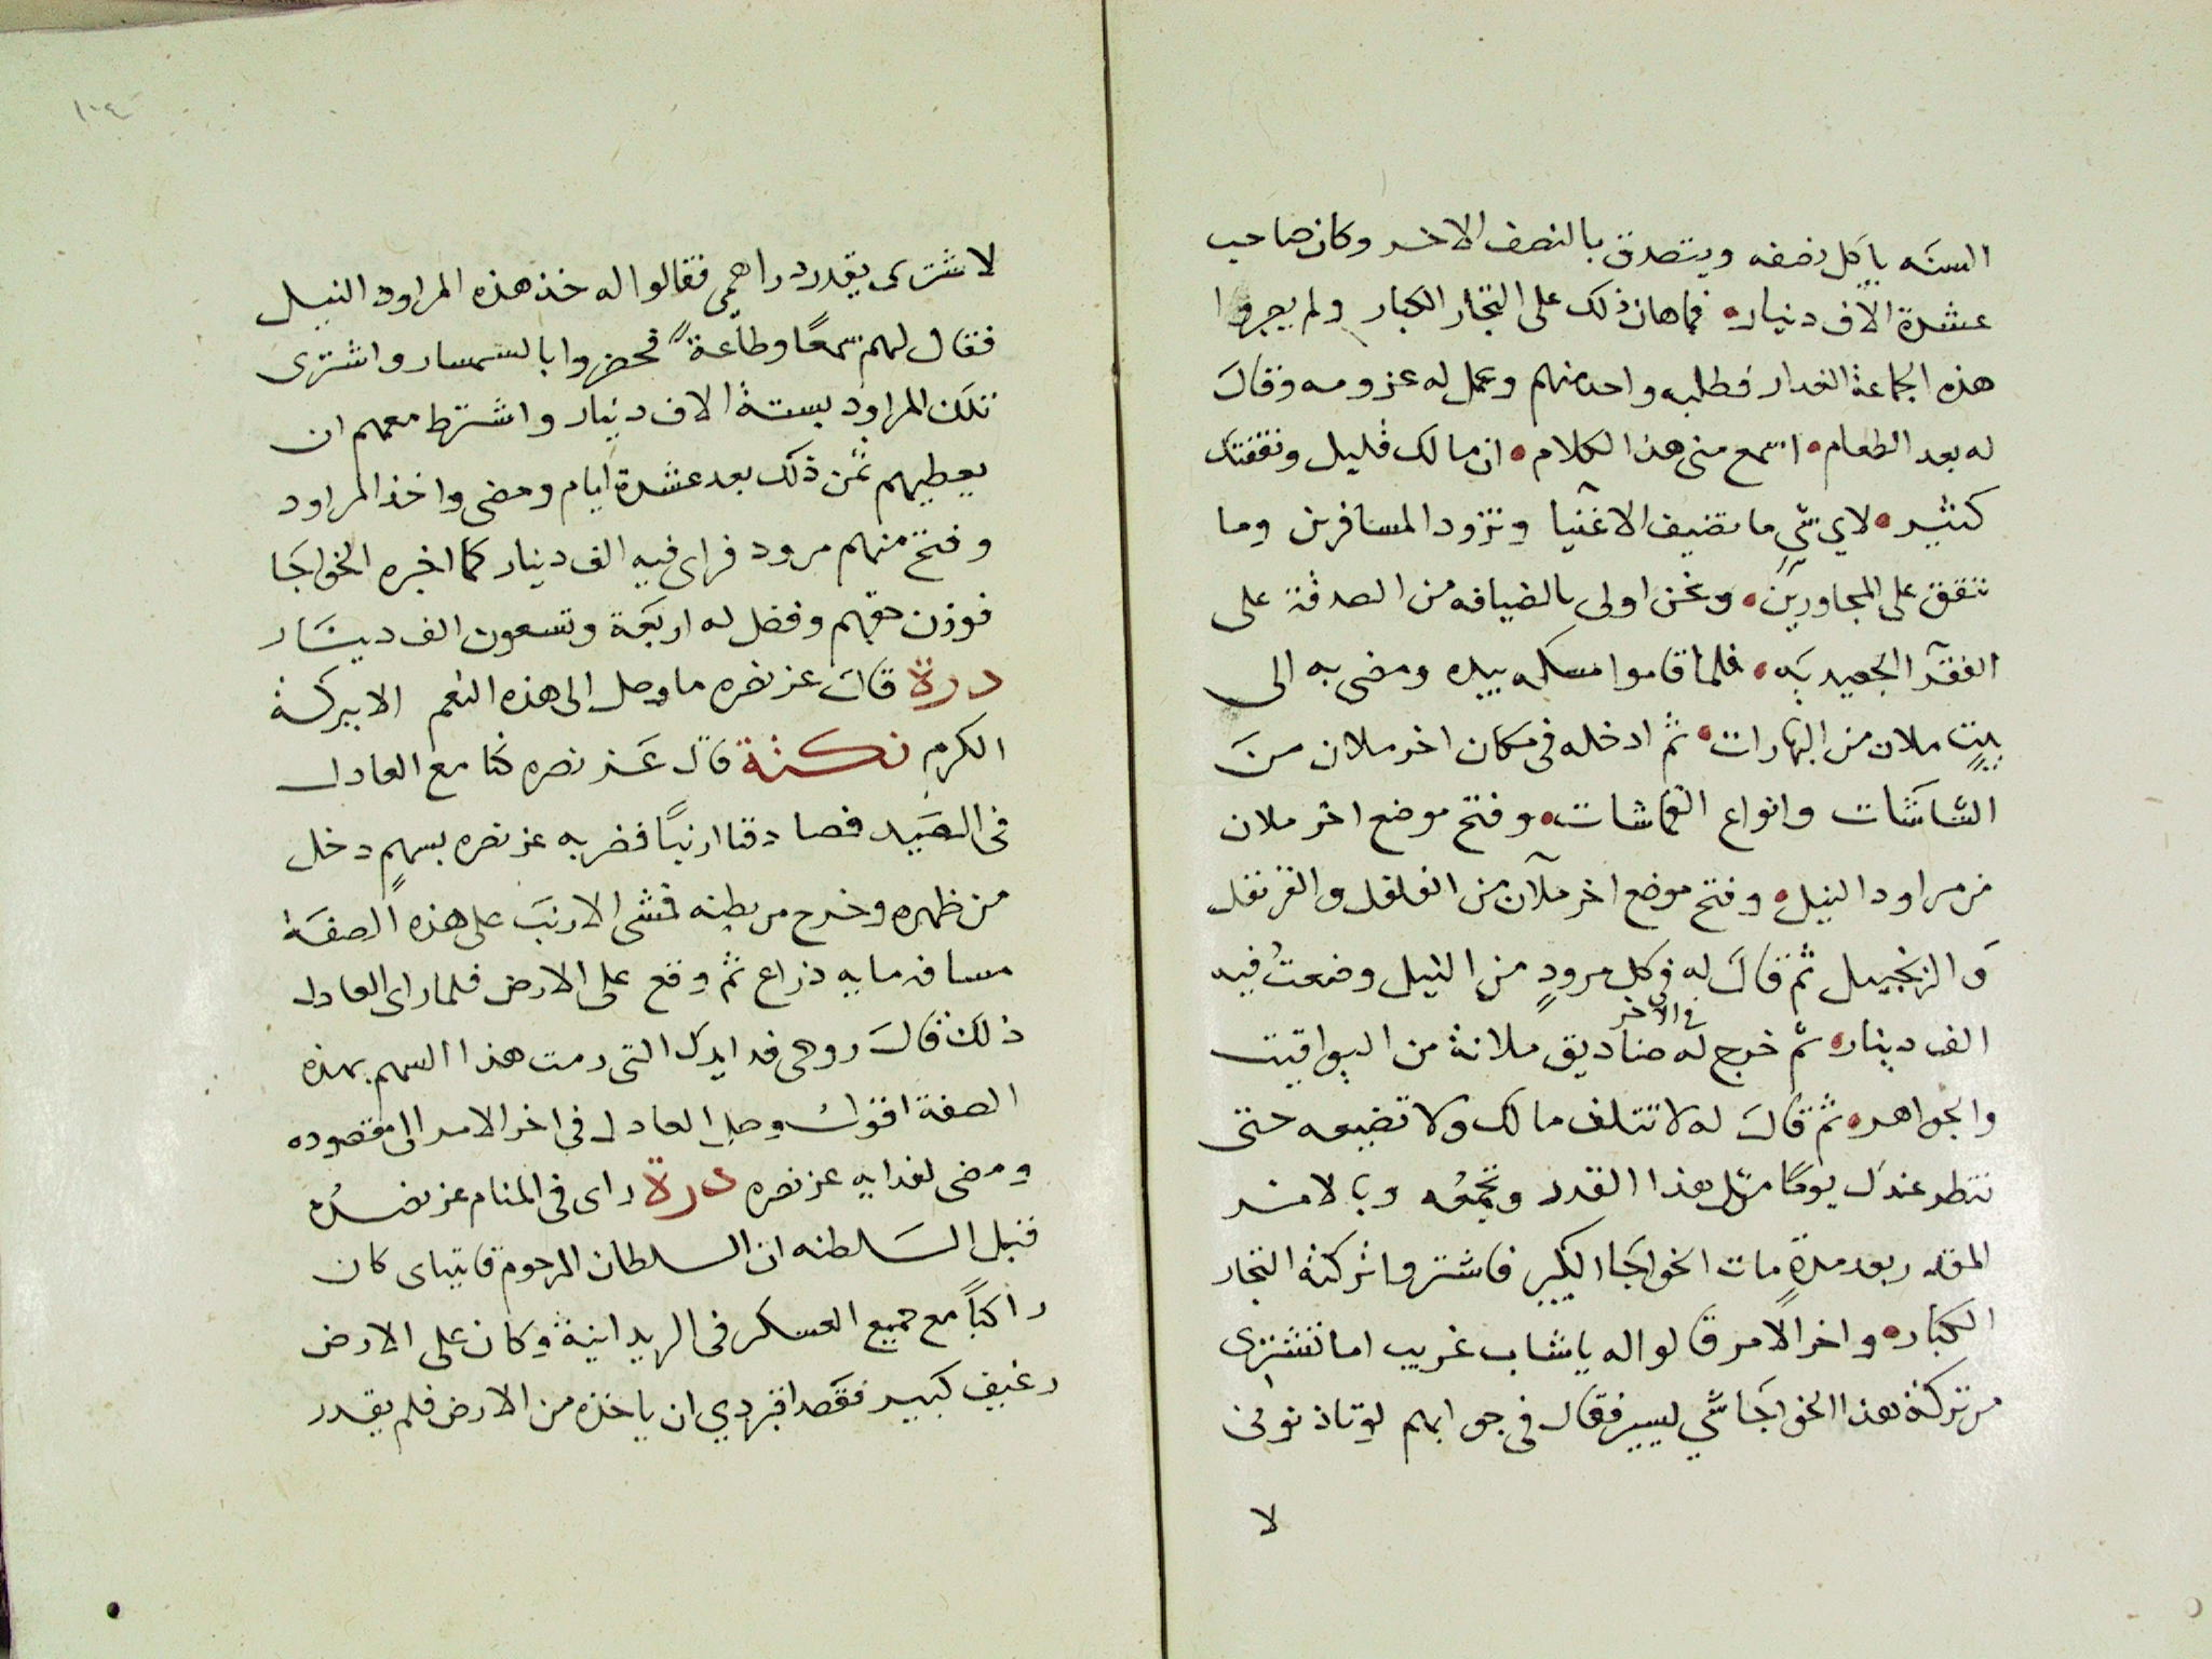 السنه ياكل نصفه ويتصدق بالنصف الاخر وكان صاحب
عشرة الاف دينار • فماهان ذلك على التجار الكبار ولم يعبروا
هذه الجماعة الغدار فطلبه واحد منهم وعمل له عزومه وقال
له بعد الطعام • اسمع منى هذا الكلام • ان مالك قليل ونفقتك
كثير • لاي شي ما تضيف الاغنيا وتزود المسافرين وما
تنفق على المجاورين • ونحن اولى بالضيافه من الصدقة على
الفقرا الجعيديه • فلما قاموا مسكه بيده ومضى به الى
بيت ملان من البهارات • ثم ادخله فى مكان اخر ملان من
الشاشات وانواع القماشات • وفتح موضع اخر ملان
من مراود النيل • وفتح موضع اخر ملآن من الفلفل والقرنفل
و الزنجبيل ثم قال له في كل مرود من النيل وضعت فيه
الف دينار • ثم خرج له في الاخر صناديق ملانة من اليواقيت
والجواهر • ثم قال له لا تتلف مالك ولا تضيعه حتى
تنظر عندك يوما مثل هذا القدر وتجمعه وبالامر
المقدر بعد مدة مات الخواجا الكبير فاشتروا تركته التجار
الكبار • واخر الامر قالوا له يا شاب غريب اما تشترى
من تركة هذا الخواجا شي يسير فقال فى جوابهم لو تاذنونى
لا
١٠٤
لاشترى بقدر دراهمى فقالوا له خذ هذه المراود النيل
فقال لهم سمعًا وطاعةً فحضروا بالسمسار واشترى
تلك المراود بستة الاف دينار واشترط معهم ان
يعطيهم ثمن ذلك بعد عشرة ايام ومضى واخذ المراود
وفتح منهم مرود فراى فيه الف دينار كما اخبره الخواجا
فوزن حقهم وفضل له اربعة وتسعون الف دينار
درة قال عز نصره ما وصل الى هذه النعم الا ببركة
الكرم نكتة قال عز نصره كنا مع العادل
فى الصيد فصادقنا ارنبًا فضربه عز نصره بسهمٍ دخل
من ظهره وخرج من بطنه فمشى الارنب على هذه الصفة
مسافه مايه ذراع ثم وقع على الارض فلما راى العادل
ذلك قال روحى فدا يدك التى رمت هذا السهم بهذه
الصفة اقول وصل العادل في اخر الامر الى مقصوده
ومضى لفدايه عز نصره درة راى فى المنام عز نصره
قبل السلطنه ان السلطان المرحوم قايتباى كان
راكبًا مع جميع العسكر فى الريدانية وكان على الارض
رغيف كبير فقصد اقبردي ان ياخذه من الارض فلم يقدر